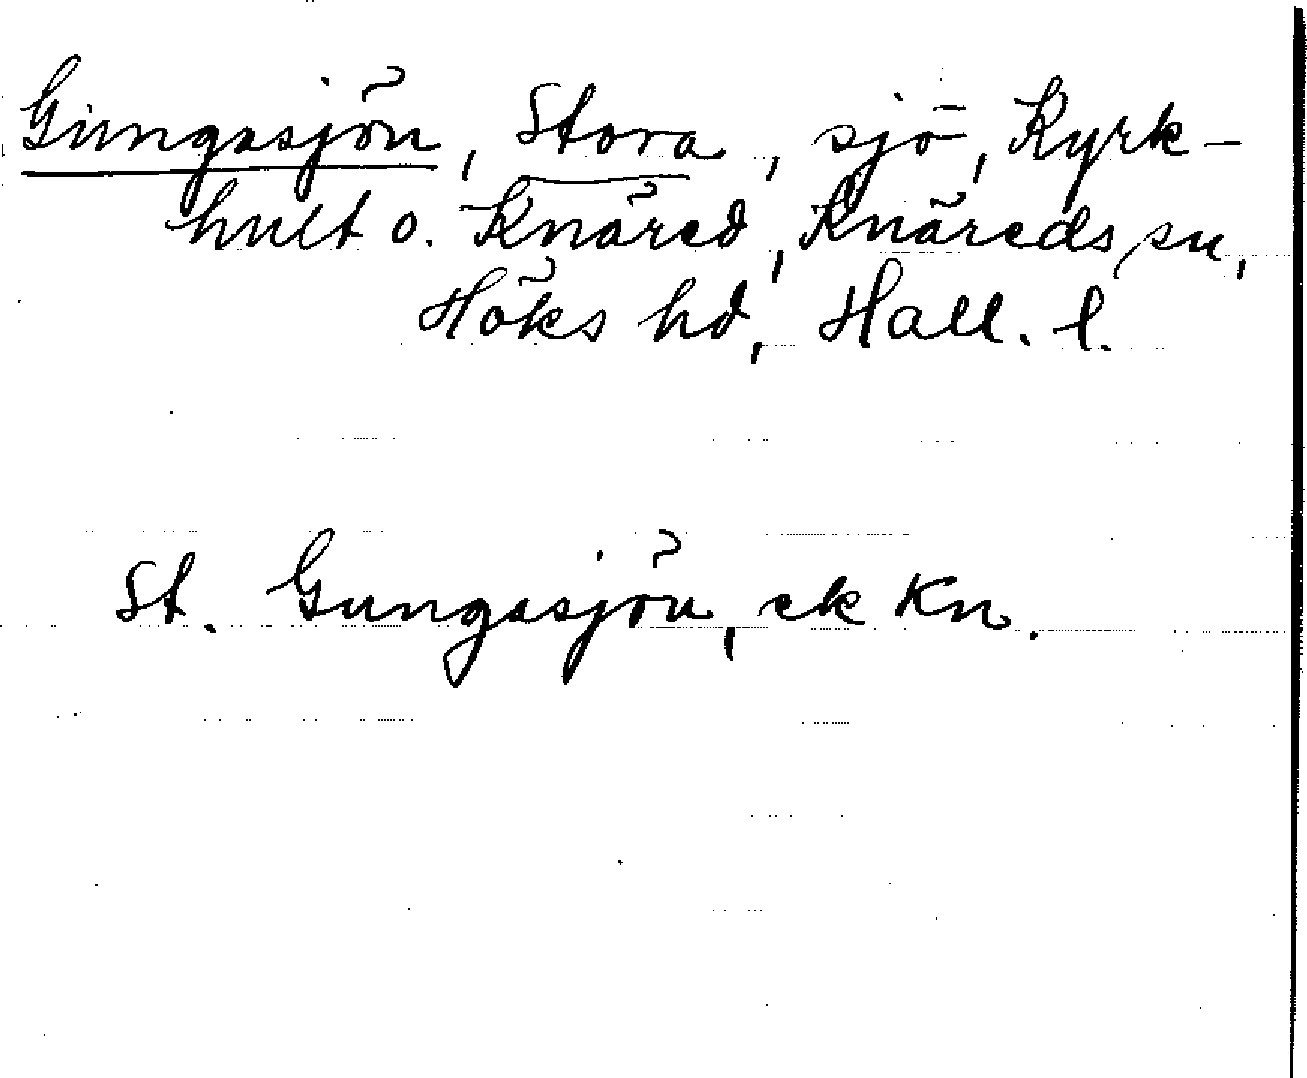 Gungasjön, Stora, sjö, Kyrk-
hult o. Knäred, Knäreds sn,
Höks hd, Hall. l.
St. Gungasjön, ek Kn.